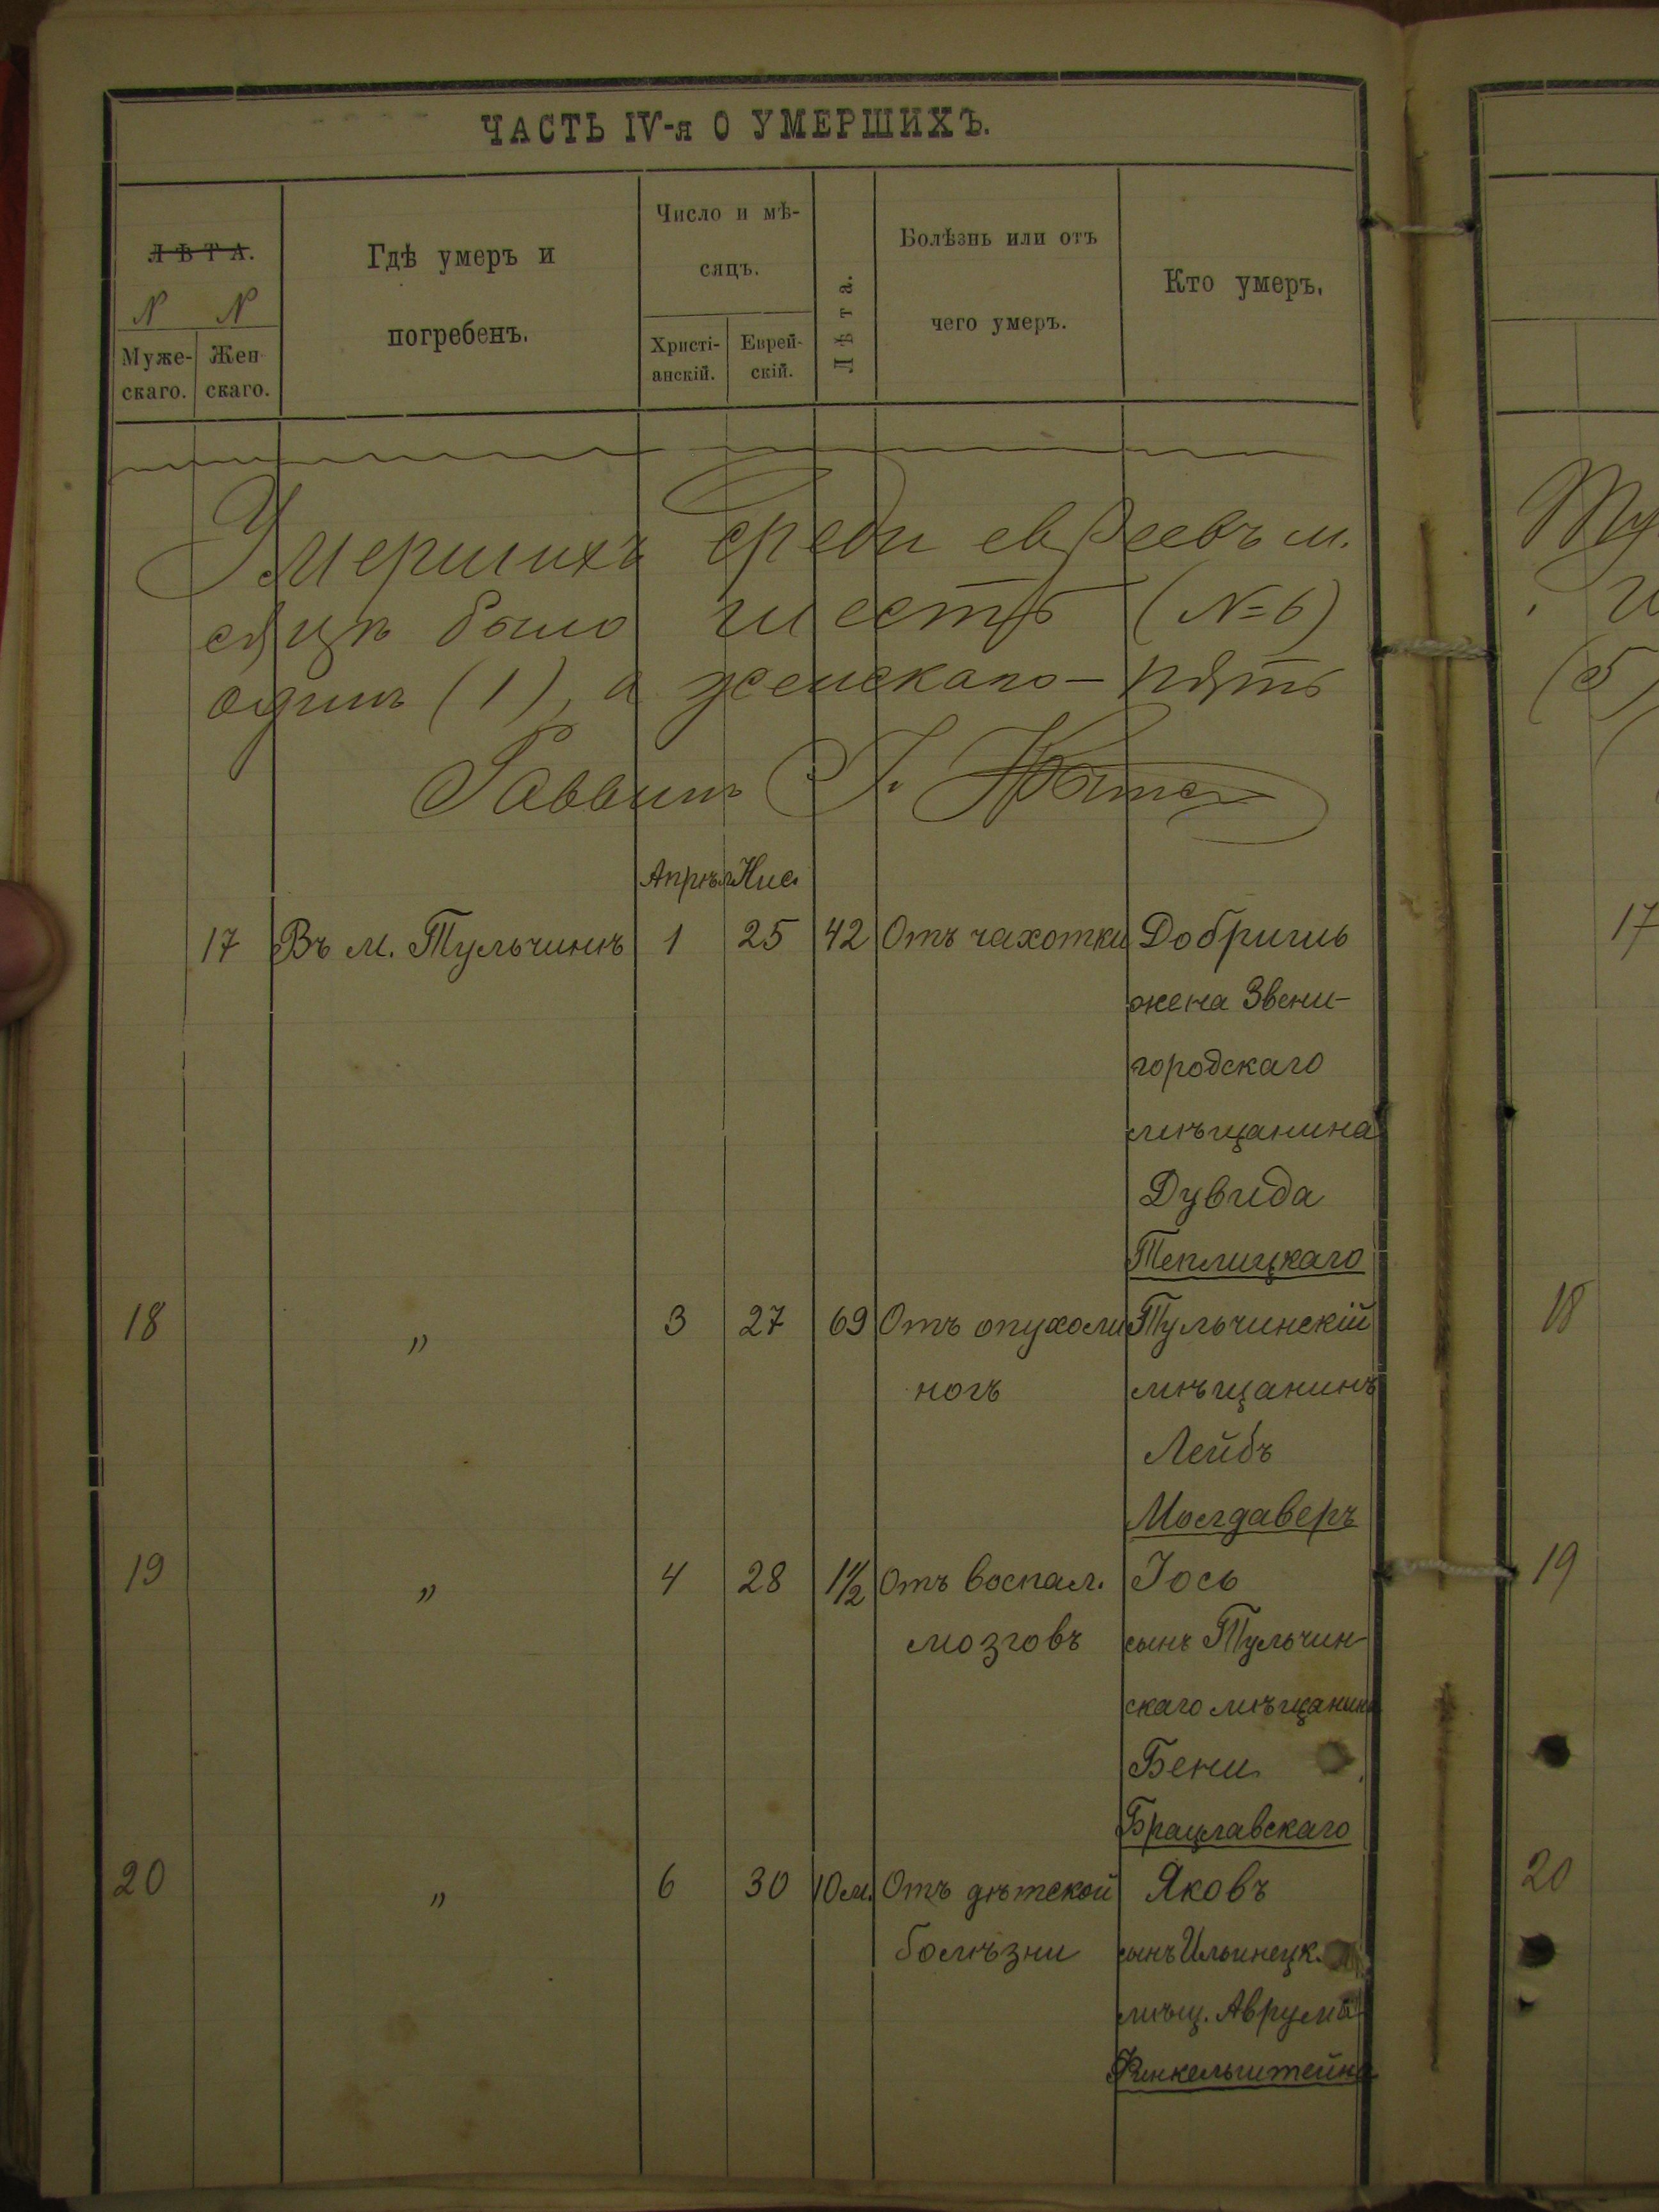 ЧАСТЬ IV-я О УМЕРШИХЪ.
ЛѢТА.
N N
Муже-
скаго.
Жен-
скаго.
Гдѣ умеръ и
погребенъ.
Число и мѣ-
сяцъ.
Христі-
анскій.
Еврей-
скій.
Лѣта.
Болѣзнь или отъ
чего умеръ.
Кто умеръ.
Умершихъ среди евреевъ м.
сяцъ было шесть (N=6)
одинъ (1), а женскаго - пять
Раввинъ
Апрѣл Нис.
17 Въ м. Тульчинѣ 1 25 42 Отъ чахотки Добришь
жена Звени-
городскаго
мѣщанина
Дувида
Теплицкаго
18 " 3 27 69 Отъ опухоли Тульчинскій
ногъ мѣщанинъ
Лейбъ
Молдаверъ
19 " 4 28 1½ Отъ воспал. Іось
мозговъ сынъ Тульчин-
скаго мѣщанина
Бени
Брацлавскаго
20 " 6 30 10 м. Отъ дѣтской Яковъ
болѣзни сынъ Ильинецк.
мѣщ. Аврума
Финкельштейна
17
18
19
20
(5)